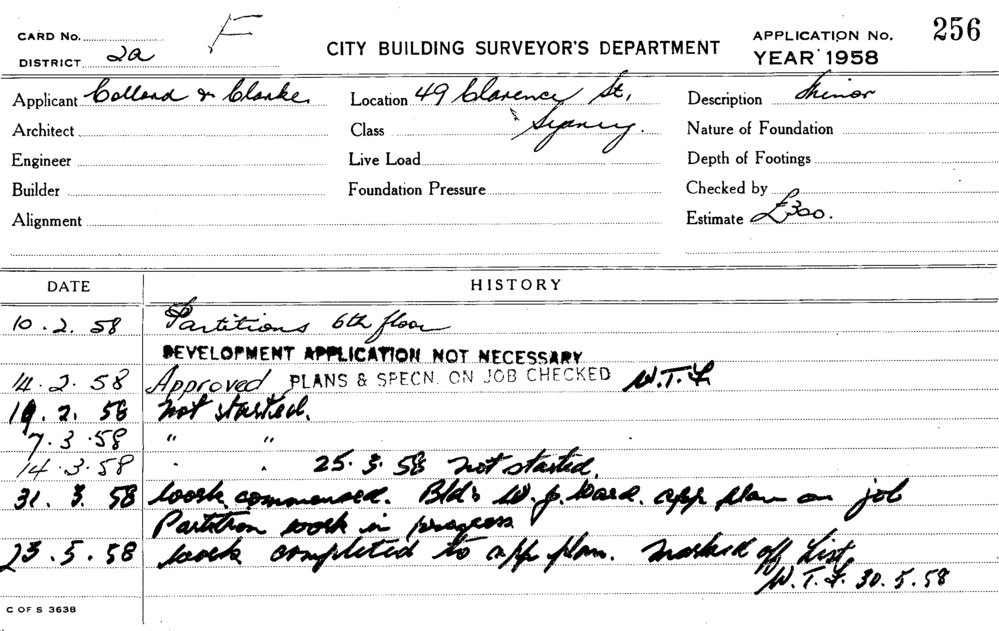 CARD No. F CITY BUILDING SURVEYOR'S DEPARTMENT APPLICATION No. 256
DISTRICT 2a YEAR 1958
Applicant Collard & Clarke. Location 49 Clarence St, Description Minor
Architect Class Sydney. Nature of Foundation
Engineer Live Load Depth of Footings
Builder Foundation Pressure Checked by
Alignment Estimate £300.
DATE HISTORY
10.2.58 Partitions 6th floor
DEVELOPMENT APPLICATION NOT NECESSARY
14.2.58 Approved PLANS & SPECN. ON JOB CHECKED W.T.F.
19.2.58 not started.
7.3.58 " "
14.3.58 " " 25.3.58 not started.
31.3.58 work commenced. Bld's W.J. Ward. app plan on job
Partition work in progress
23.5.58 work completed to app plan. marked off List
W.T.F. 30.5.58
C OF S 3638